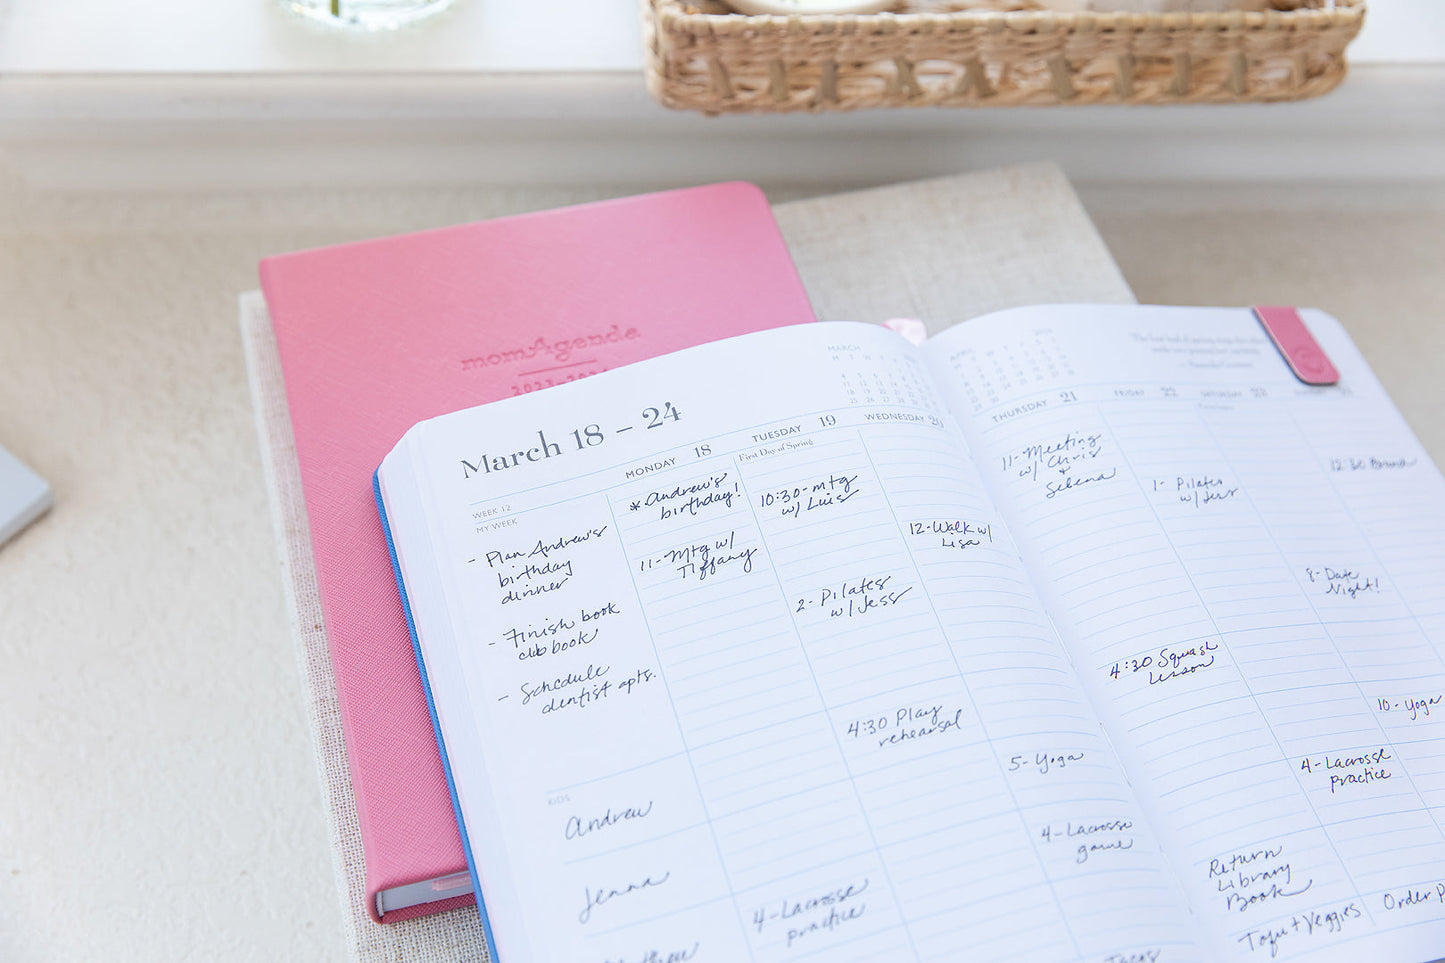 momAgenda
2023-2024
March 18 – 24
MARCH
WEEK 12
MY WEEK
- Plan Andrew's
birthday
dinner
- Finish book
club book
- Schedule
dentist apts.
MONDAY 18
* Andrew's
birthday!
11-Mtg w/
Tiffany
TUESDAY 19
First Day of Spring
10:30-mtg
w/ Luis
2- Pilates
w/ Jess
4:30 Play
rehearsal
4-Lacrosse
practice
WEDNESDAY 20
12-Walk w/
Lisa
5- Yoga
4-Lacrosse
game
Tacos
KIDS
Andrew
Jenna
APRIL
THURSDAY 21
11-Meeting
w/ Chris
+
Selena
4:30 Squash
Lesson
Return
Library
Book
Tofu + Veggies
FRIDAY 22
1- Pilates
w/ Jess
4-Lacrosse
practice
Order
SATURDAY
8-Date
Night!
12:30
10- Yoga